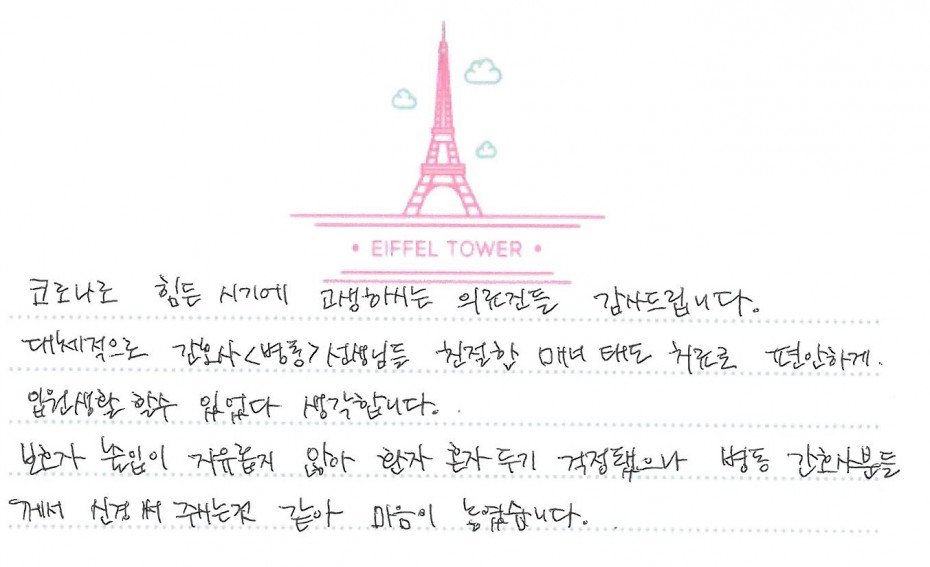 EIFFEL TOWER
코로나로 힘든 시기에 고생하시는 의료진들 감사드립니다.
대체적으로 간호사<병동>선생님들 친절한 매너 태도 치료로 편안하게.
입원생활 할수 있었다 생각합니다.
보호자 출입이 자유롭지 않아 환자 혼자 두기 걱정됐으나 병동 간호사분들
께서 신경 써 주시는것 같아 마음이 놓였습니다.